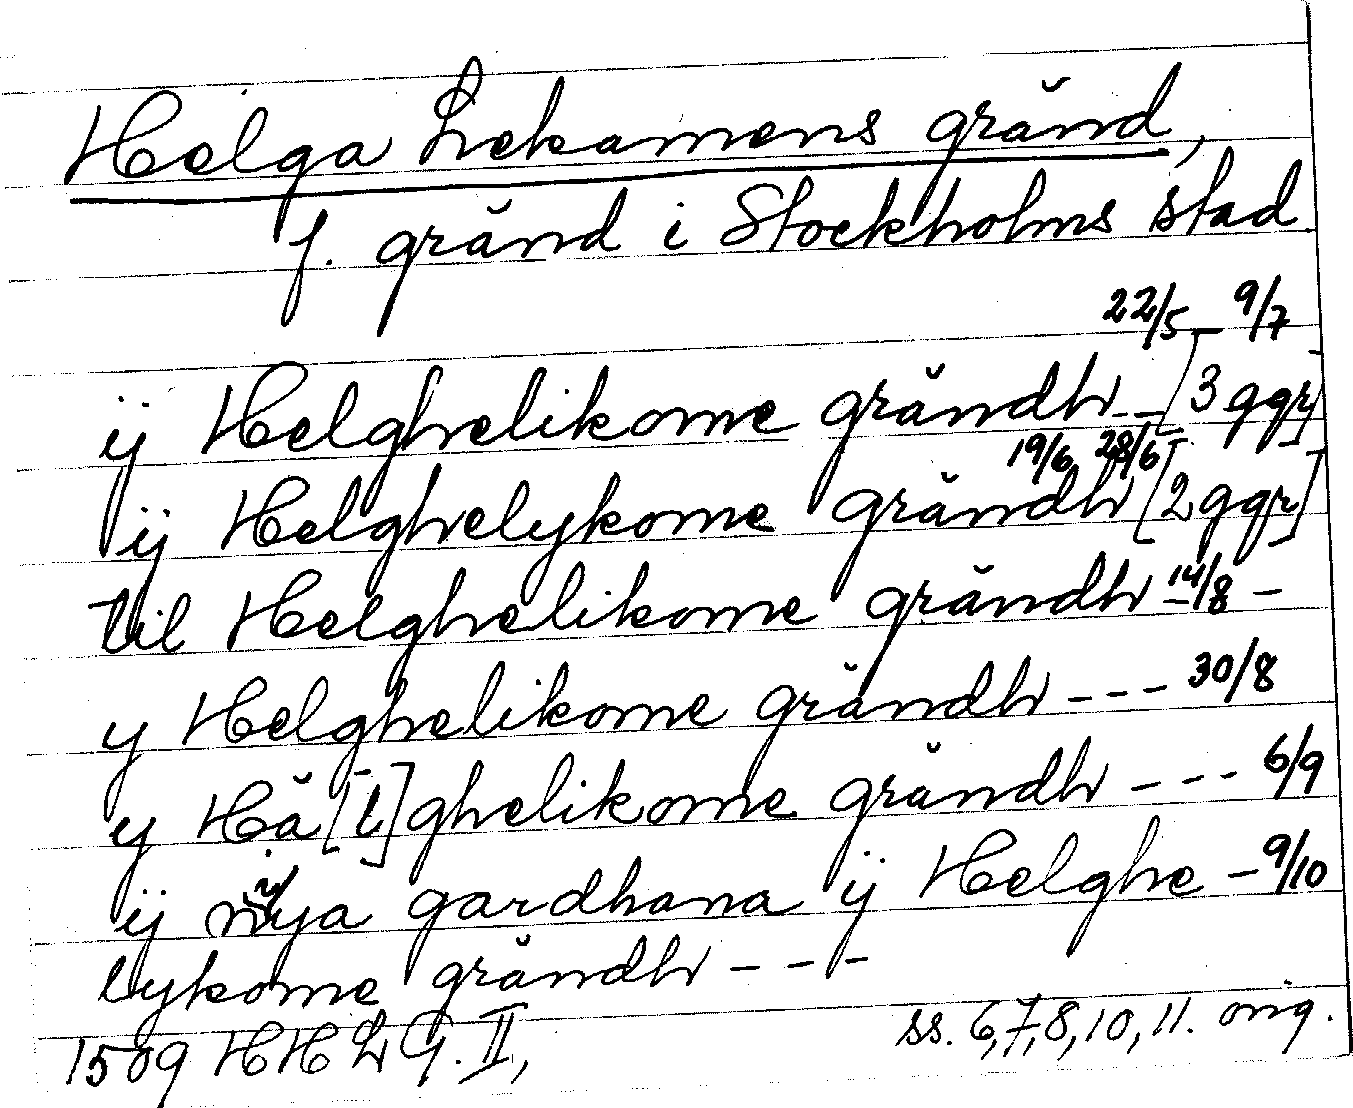 Helga Lekamens gränd,
f. gränd i Stockholms stad.
22/5 – 9/7
ÿ Helghelikome grändh -- [3 ggr]
19/6, 28/6
ÿ Helghelykome grändh [2 ggr]
til Helghelikome grändh – 14/8 –
y Helghelikome grändh --- 30/8
y Hä[l]ghelikome grändh --- 6/9
ÿ nÿya gardhana ÿ Helghe – 9/10
lykome grändh ---
1509 HHLG. II, ss. 6,7,8,10,11. orig.